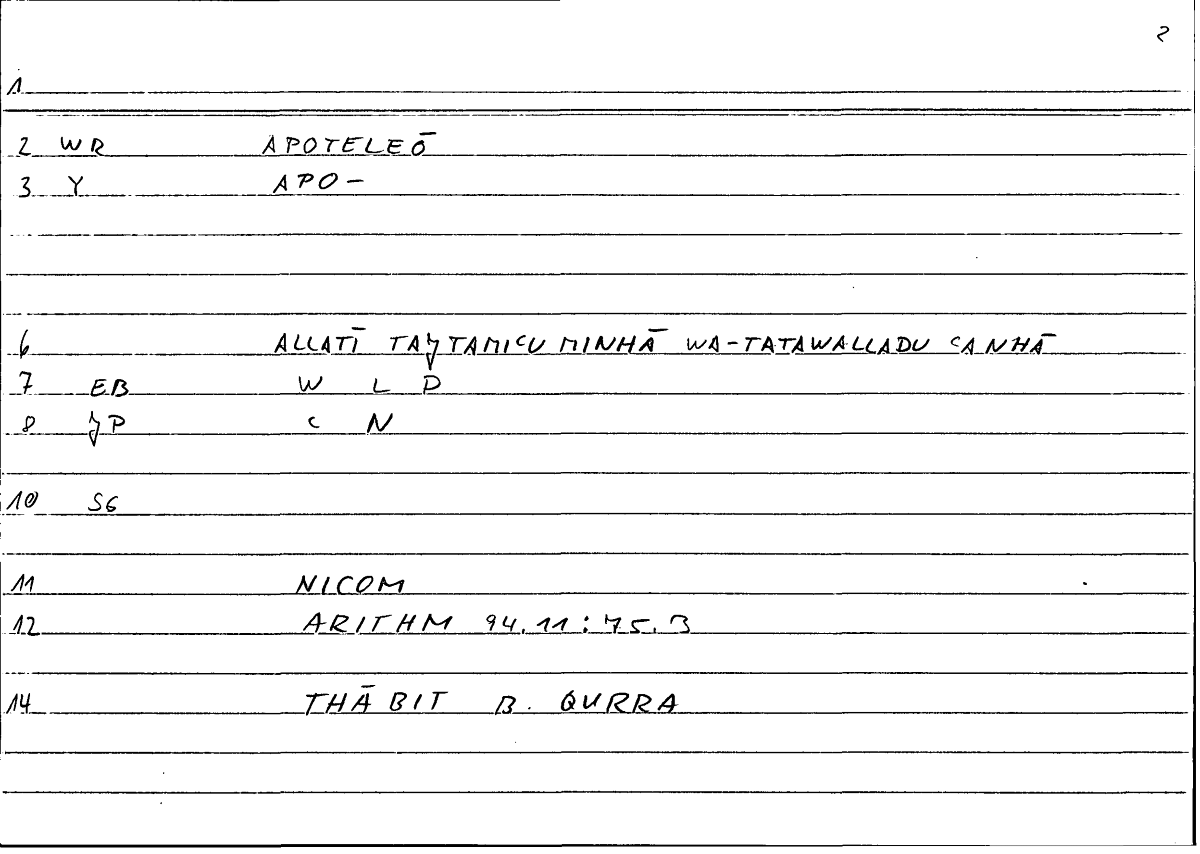 2
1
2 WR APOTELEŌ
3 Y APO-
6 ALLATĪ TAǦTAMIʿU MINHĀ WA-TATAWALLADU ʿANHĀ
7 EB W L D
8 ǦP ʿ N
10 SG
11 NICOM
12 ARITHM 94.11:75.3
14 THĀBIT B. QURRA